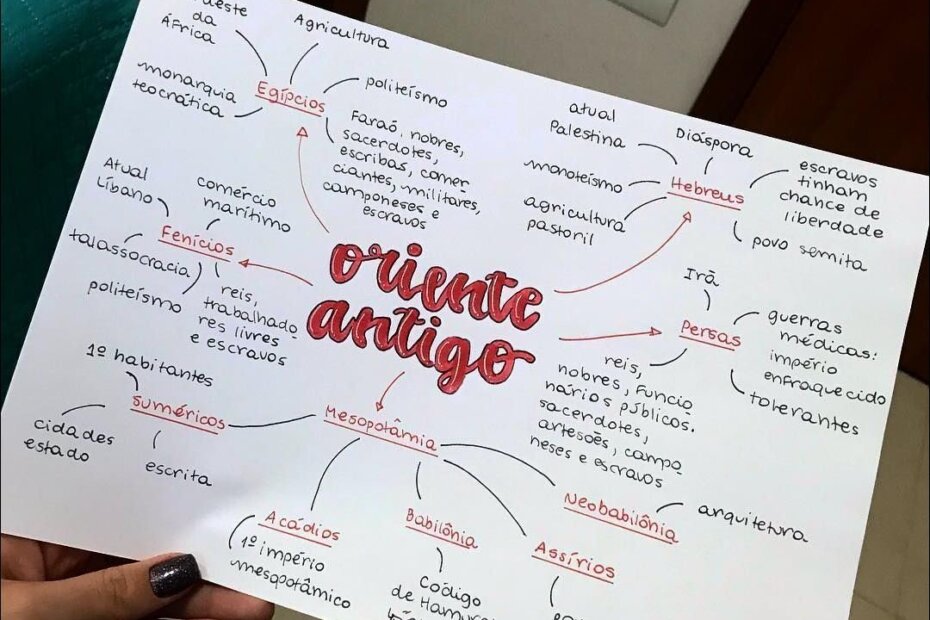 da
África
Agricultura
Egípcios
politeísmo
monarquia
teocrática
Faraó, nobres,
sacerdotes,
escribas, comer
ciantes, militares,
camponeses e
escravos
atual
Palestina
Diáspora
monoteísmo
Hebreus
escravos
tinham
chance de
liberdade
agricultura
pastoril
povo semita
Atual
Líbano
comércio
marítimo
Fenícios
talassocracia
politeísmo
reis,
trabalhado
res livres
e escravos
oriente
antigo
Irã
Persas
guerras
médicas:
império
enfraquecido
tolerantes
reis,
nobres, funcio
nários públicos.
sacerdotes,
artesões, campo
neses e escravos
1º habitantes
Suméricos
cidades
estado
escrita
Mesopotâmia
Acádios
1º império
mesopotâmico
Babilônia
Código
Assírios
Neobabilônia
arquitetura